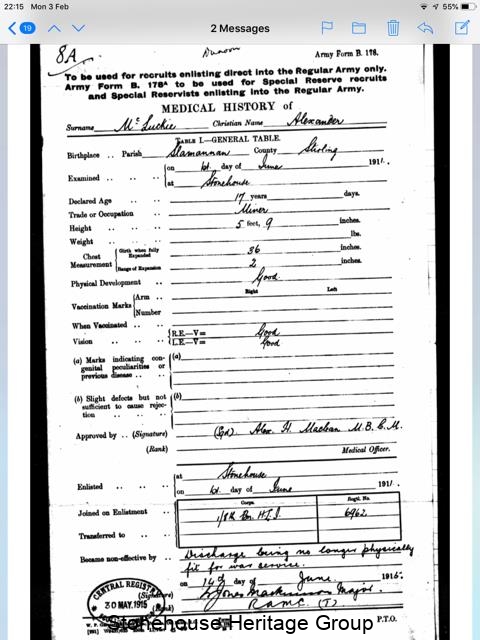 22:15 Mon 3 Feb
55%
19
2 Messages
8A
Dunoon
Army Form B. 178.
To be used for recruits enlisting direct into the Regular Army only.
Army Form B. 178A to be used for Special Reserve recruits
and Special Reservists enlisting into the Regular Army.
MEDICAL HISTORY of
Surname McLuckie Christian Name Alexander
TABLE I.—GENERAL TABLE.
Birthplace .. Parish Slamannan County Stirling
Examined .. .. .. on 1st day of June 191 .
at Stonehouse
Declared Age .. .. 17 years days.
Trade or Occupation .. Miner
Height .. .. .. 5 feet, 9 inches.
Weight .. .. .. lbs.
Chest Measurement Girth when fully Expanded 36 inches.
Range of Expansion 2 inches.
Physical Development .. Good
Right Left
Vaccination Marks Arm ..
Number
When Vaccinated .. ..
Vision .. .. R.E.—V= Good
L.E.—V= Good
(a) Marks indicating con- (a)
genital peculiarities or
previous disease .. ..
(b) Slight defects but not (b)
sufficient to cause rejec-
tion .. .. ..
Approved by .. (Signature) (Sd) Alex. H. Maclean M.B.C.M.
(Rank) Medical Officer.
Enlisted .. .. .. at Stonehouse
on 1st day of June 191 .
Corps. Regtl. No.
Joined on Enlistment .. 1/8th Bn. H.L.I. 6962.
Transferred to ..
Became non-effective by .. Discharge being no longer physically
fit for war service.
on 14th day of June 1915.
(Signature) Jones Mackinnon Major.
(Rank) R.A.M.C. (T)
CENTRAL REGISTRY
30 MAY. 1915
P.T.O.
Stonehouse Heritage Group